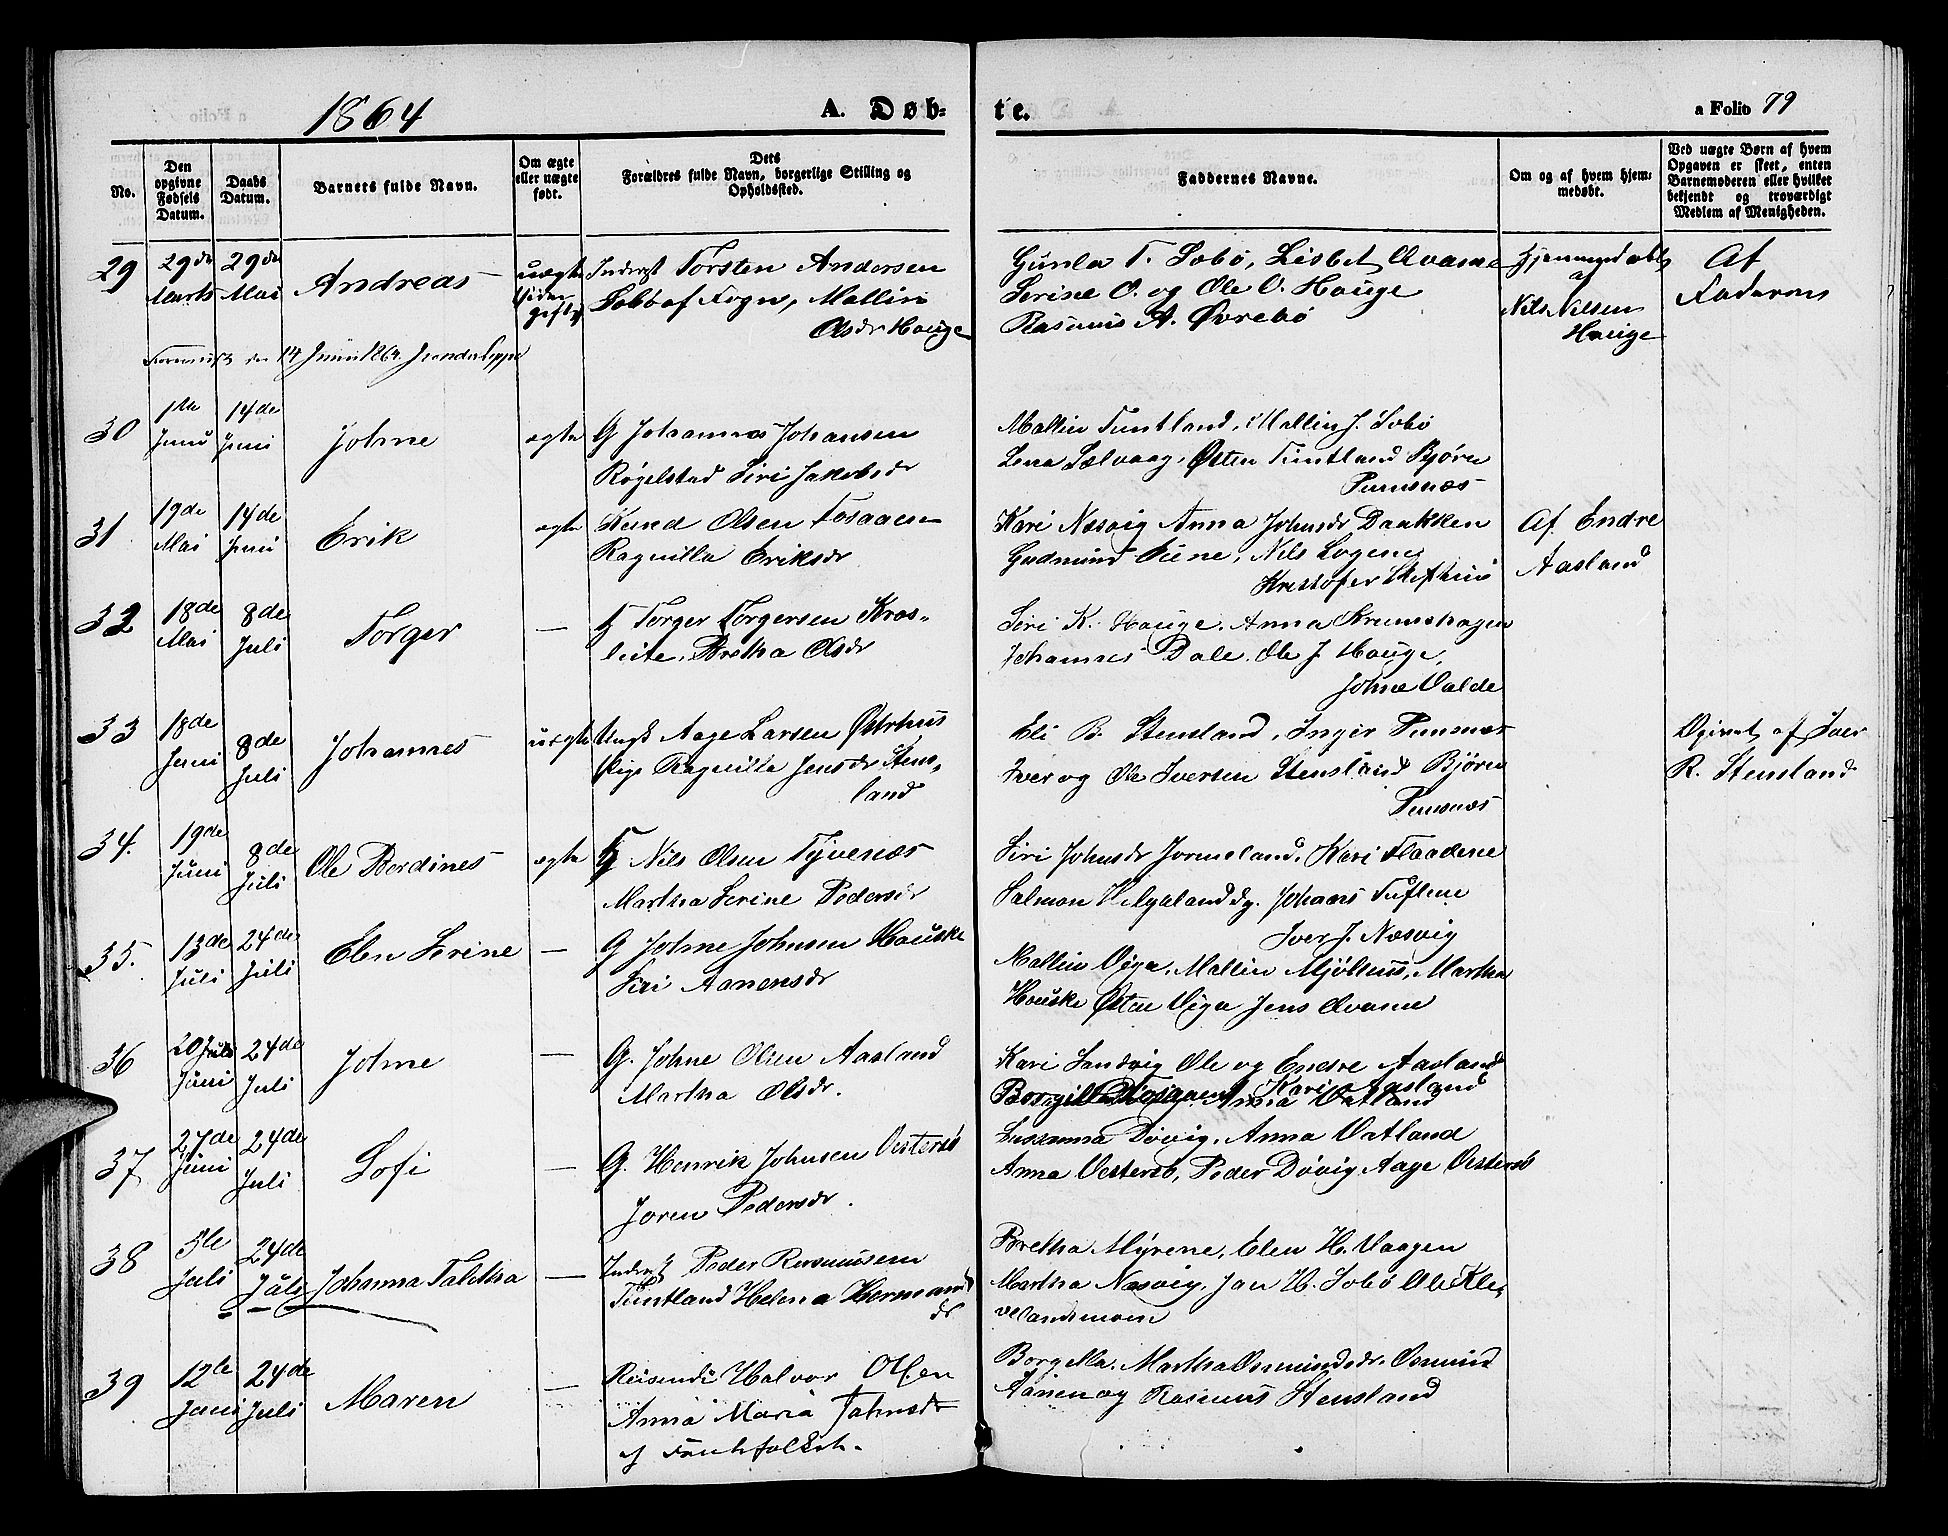 1864
A. Døb-
te.
a Folio 79
No.
Den opgivne Fødsels Datum.
Daabs Datum.
Barnets fulde Navn.
Om ægte eller uægte født.
Dets Forældres fulde Navn, borgerlige Stilling og Opholdssted.
Faddernes Navne.
Om og af hvem hjemmedøbt.
Ved uægte Børn af hvem Opgaven er skeet, enten Barnemoderen eller hvilket bekjendt og troværdigt Medlem af Menigheden.
29 29de Marts 29de Mai Andreas uægte
Inderst Torsten Andersen
Sobö af Fogn, Mallin
Olsdr Hauge
Gunla T. Sobö, Lisbet Qvame
Serine O. og Ole O. Hauge
Rasmus A. Øvrebö
Hjemmedøbt
af
Nils Nilsen
Hauge
Af
Faderen
den 14 Juni 1864
30 1te Juni 14de Juni Johne ægte
G Johannes Johansen
Røgelstad Siri Jakobsdr
Mallin Tuntland, Mallin J. Sobö
Lena Sælvaag, Østen Tuntland Bjørn
31 19de Mai 14de Juni Erik ægte
Knud Olsen Fosaaen
Ragnilla Eriksdr
Kari Næsvig Anna Johnsdr Baakken
Gudmund Nils
Af Endre
Aasland
32 18de Mai 8de Juli Torger —
G Torger Torgersen Kros-
Bretha Olsdr
Siri K. Hauge, Anna
Johannes Dale, Ole J. Hauge,
Johne Valde
33 18de Juni 8de Juli Johannes uægte
Ungk Aage Larsen Østrhus
Pige Ragnilla Jensdr Stens-
land
Eli B. Stensland, Inger
Iver og Ole Iversen Stensland Bjørn
Opivet af Iver
R. Stensland
34. 19de Juni 8de Juli Ole Berdines ægte
G Nils Olsen Tyvenæs
Martha Serine Pedersdr
Siri Johnsdr Jormeland, Kari Flaadene
Salmon Helgaland
Iver J. Næsvig
35. 13de Juli 24de Juli Elen Serine —
G Johne Johnsen Houske
Siri Aanensdr
Mallin Viga, Mallin Mjölhus, Martha
Houske Østen Viga Jens Qvame
36 20 Juni 24de Juli Johne —
G. Johne Olsen Aasland
Martha Olsdr.
Kari Sandvig Ole og Endre Aasland
Kari Aasland
37 27de Juni 24de Juli Sofi —
G. Henrik Johnsen Vestersö
Joren Pedersdr.
Susanna Dövig, Anna Vatland
Anna Vestersö, Peder Dövig Aage Vestersö
38 5te Juli 24de Juli Johanna Talitha —
Inderst Peder Rasmusen
Tuntland Helena Hermans
dr
Bretha Myrene, Elen H. Vaagen
Martha Næsvig, Jan H. Sobö Ole Kle-
velandsmoen
39 12te Juni 24de Juli Maren —
Reisende Halvor Olsen
Anna Maria Johnsdr
af
Borgella, Martha Osmundsdr. Osmund
Aanen og Rasmus Stensland